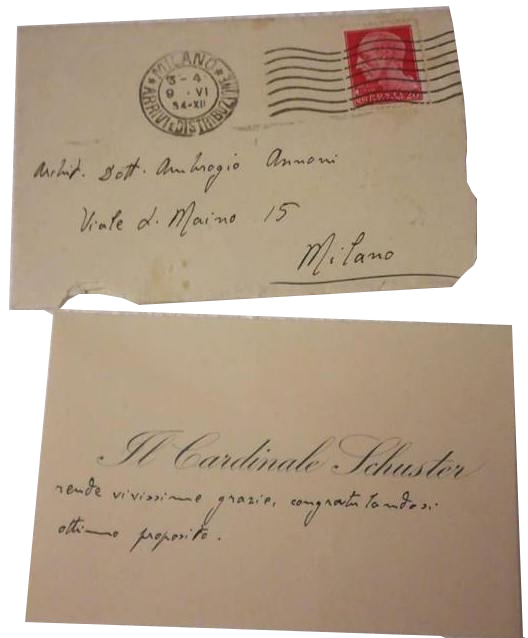 MILANO
3-4
9 · VI
34-XII
ARRIVI E DISTRIBUZIONE
Archit. Dott. Ambrogio Annoni
Viale L. Maino 15
Milano
Il Cardinale Schuster
rende vivissime grazie, congratulandosi
ottimo proposito.